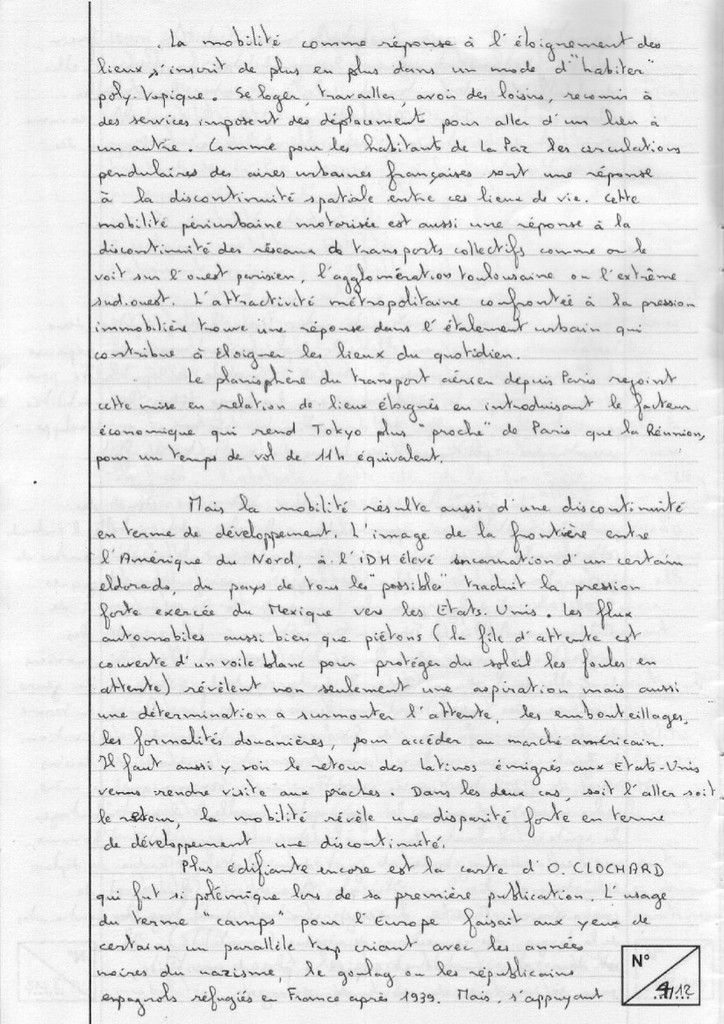 . La mobilité comme réponse à l'éloignement des
lieux s'inscrit de plus en plus dans un mode d'"habiter"
poly-topique. Se loger, travailler, avoir des loisirs, recourir à
des services imposent des déplacements pour aller d'un lieu à
un autre. Comme pour les habitants de La Paz les circulations
pendulaires des aires urbaines françaises sont une réponse
à la discontinuité spatiale entre ces lieux de vie. Cette
mobilité périurbaine motorisée est aussi une réponse à la
discontinuité des réseaux de transports collectifs comme on le
voit sur l'ouest parisien, l'agglomération toulousaine ou l'extrême
sud-ouest. L'attractivité métropolitaine confrontée à la pression
immobilière trouve une réponse dans l'étalement urbain qui
contribue à éloigner les lieux du quotidien.
Le planisphère du transport aérien depuis Paris rejoint
cette mise en relation de lieux éloignés en introduisant le facteur
économique qui rend Tokyo plus "proche" de Paris que la Réunion,
pour un temps de vol de 11h équivalent.
Mais la mobilité résulte aussi d'une discontinuité
en terme de développement. L'image de la frontière entre
l'Amérique du Nord, à l'IDH élevé incarnation d'un certain
eldorado, du pays de tous les "possibles" traduit la pression
forte exercée du Mexique vers les Etats-Unis. Les flux
automobiles aussi bien que piétons (la file d'attente est
couverte d'un voile blanc pour protéger du soleil les foules en
attente) révèlent non seulement une aspiration mais aussi
une détermination a surmonter l'attente, les embouteillages,
les formalités douanières, pour accéder au marché américain.
Il faut aussi y voir le retour des latinos émigrés aux Etats-Unis
venus rendre visite aux proches. Dans les deux cas, soit l'aller soit
le retour, la mobilité révèle une disparité forte en terme
de développement, une discontinuité.
Plus édifiante encore est la carte d'O. CLOCHARD
qui fut si polémique lors de sa première publication. L'usage
du terme "camps" pour l'Europe faisait aux yeux de
certains un parallèle trop criant avec les années
noires du nazisme, le goulag ou les républicains
espagnols réfugiés en France après 1939. Mais, s'appuyant
N°
4/12